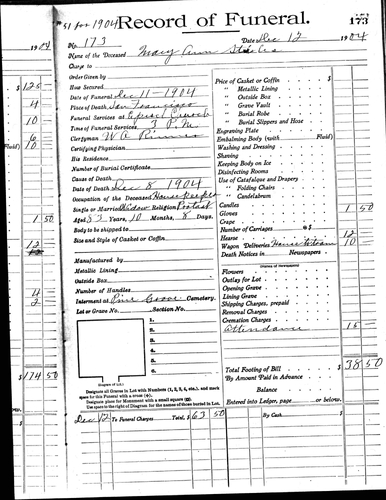 #51 for 1904
Record of Funeral.
173
1904
No. 173
Date Dec 12 1904
Name of the Deceased Mary Ann
Charge to
Order Given by
How Secured
Date of Funeral Dec 11 - 1904
Place of Death San Francisco
Funeral Services at Episco Church
Time of Funeral Services 1 P.M.
Clergyman W A
Certifying Physician
His Residence
Number of Burial Certificate
Cause of Death
Date of Death Dec 8 1904
Occupation of the Deceased Housekeeper
Single or Married Widow Religion Protest
Aged 83 Years, 10 Months, 8 Days.
Body to be shipped to
Size and Style of Casket or Coffin.
Manufactured by
Metallic Lining
Outside Box
Number of Handles
Interment at Pine Grove Cemetery.
Lot or Grave No. Section No.
1.
2.
3.
4.
5.
6.
(Diagram of Lot.)
Designate all Graves in Lot with Numbers (1, 2, 3, 4, etc.), and mark
space for this Funeral with a cross (+).
Designate place for Monument with a small square (□).
Use space to the right of Diagram for the names of those buried in Lot.
Dec 12 To Funeral Charges Total, $ 63 50
Price of Casket or Coffin $
" Metallic Lining
" Outside Box
" Grave Vault
" Burial Robe
" Burial Slippers and Hose
Engraving Plate
Embalming Body (with Fluid)
Washing and Dressing
Shaving
Keeping Body on Ice
Disinfecting Rooms
Use of Catafalque and Drapery
" Folding Chairs
" Candelabrum
Candles
Gloves 1 50
Crape
Number of Carriages @$
Hearse 12
Wagon Deliveries House & Team 10
Death Notices in Newspapers
(Names of Newspapers)
Flowers
Outlay for Lot
Opening Grave
Lining Grave
Shipping Charges, prepaid
Removal Charges
Cremation Charges
Attendance 15
Total Footing of Bill $ 38 50
By Amount Paid in Advance
Balance
Entered into Ledger, page or below.
By Cash $
$ 125
4
10
6
Fluid) 10
1 50
12
11
2
$ 174 50
below.